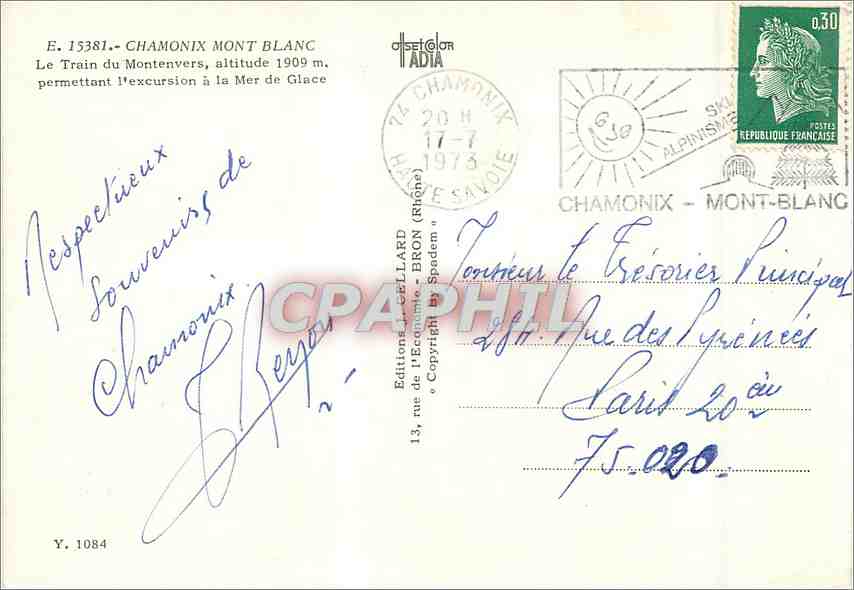 E. 15381.- CHAMONIX MONT BLANC
Le Train du Montenvers, altitude 1909 m.
permettant l'excursion à la Mer de Glace
offset color
ADIA
74 CHAMONIX
20 H
17-7
1973
HAUTE SAVOIE
SKI
ALPINISME
CHAMONIX - MONT-BLANC
0,30
POSTES
REPUBLIQUE FRANÇAISE
Respectueux
Souvenirs de
Chamonix.
Editions J. CELLARD
13, rue de l'Economie - BRON (Rhône)
" Copyright by Spadem "
CPAPHIL
Monsieur le Trésorier Principal
Rue des Pyrénées
Paris 20
75.020.
Y. 1084